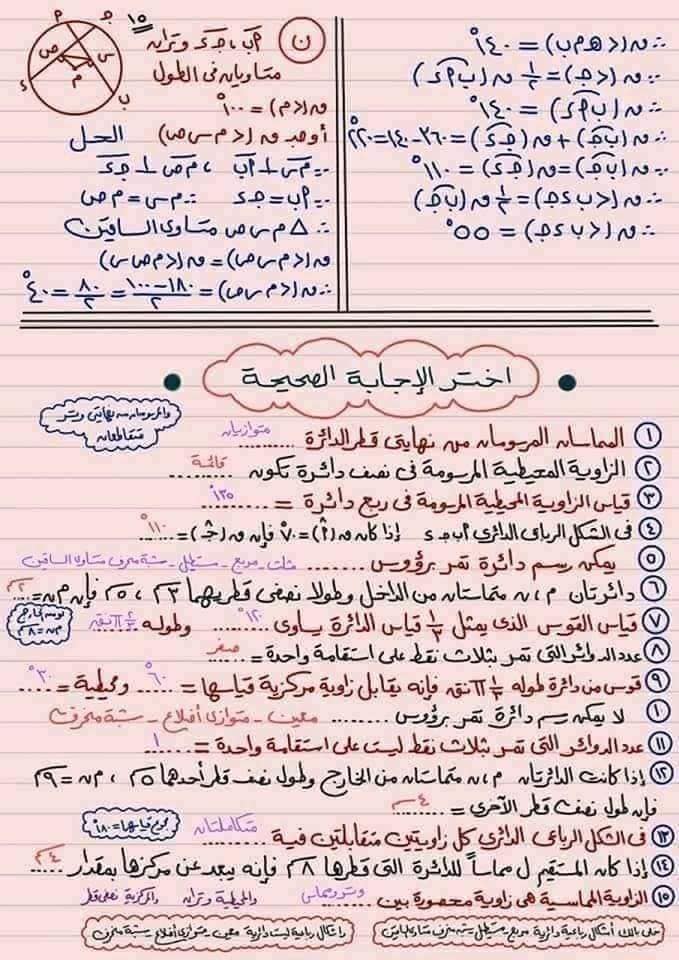 ∴ ق(< ه م ب) = ١٤٠°
∴ ق(< ج) = ½ ق(ب أ د)
∴ ق(ب أ د) = ١٤٠°
∴ ق(ب ج) + ق(ج د) = ٣٦٠ - ١٤٠ = ٢٢٠°
∵ ق(ب ج) = ق(ج د) = ١١٠°
∵ ق(< ب د ج) = ½ ق(ب ج)
∴ ق(< ب د ج) = ٥٥°
١٥
ن
أب ، ج د وتران
متساويان فى الطول
ق(< م) = ١٠٠°
أوجد ق(< م س ص)
الحل
∵ م س ⊥ أب ، م ص ⊥ ج د
∵ أب = ج د ∴ م س = م ص
∴ △ م س ص متساوى الساقين
ق(< م س ص) = ق(< م ص س)
∴ ق(< م س ص) = (١٨٠ - ١٠٠)/٢ = ٨٠/٢ = ٤٠°
أ ج س ص م د ب
اختر الإجابة الصحيحة
والمرسومان من نهايتى وتر
متقاطعان
١ المماسان المرسومان من نهايتى قطر الدائرة ........ متوازيان
٢ الزاوية المحيطية المرسومة فى نصف دائرة تكون ........ قائمة
٣ قياس الزاوية المحيطية المرسومة فى ربع دائرة = ........ ١٣٥°
٤ فى الشكل الرباعى الدائرى أ ب ج د إذا كان ق(أ) = ٧٠° فإن ق(ج) = ........ ١١٠°
٥ يمكن رسم دائرة تمر برؤوس ........ مثلث - مربع - مستطيل - شبة منحرف متساوى الساقين
٦ دائرتان م ، ن متماستان من الداخل وطولا نصفى قطريهما ٣سم ، ٥سم فإن م ن = .... ٢سم
لو من الخارج
م ن = ٨سم
٧ قياس القوس الذى يمثل ⅓ قياس الدائرة يساوى ........ ١٢٠° وطوله ........ ⅔ π نق
٨ عدد الدوائر التى تمر بثلاث نقط على استقامة واحدة = ........ صفر
٩ قوس من دائرة طوله ⅓ π نق فإنه يقابل زاوية مركزية قياسها = ........ ٦٠° ومحيطية = ........ ٣٠°
١٠ لا يمكن رسم دائرة تمر برؤوس ........ معين - متوازى أضلاع - شبة منحرف
١١ عدد الدوائر التى تمر بثلاث نقط ليست على استقامة واحدة = ........ ١
١٢ إذا كانت الدائرتان م ، ن متماستان من الخارج وطول نصف قطر أحدهما ٥سم ، م ن = ٩سم
فإن طول نصف قطر الآخرى = ........ ٤سم
١٣ فى الشكل الرباعى الدائرى كل زاويتين متقابلتين فية ........ متكاملتان
مجموع قياسها = ١٨٠°
١٤ إذا كان المستقيم ل مماساً للدائرة التى قطرها ٨سم فإنه يبعد عن مركزها بمقدار ........ ٤سم
١٥ الزاوية المماسية هى زاوية محصورة بين ........ وتر ومماس والمحيطية وتران والمركزية نصفى قطر
خلى بالك أشكال رباعية دائرية مربع - مستطيل - شبه منحرف متساوى الساقين
وأشكال رباعية ليست دائرية معين - متوازى أضلاع - شبة منحرف